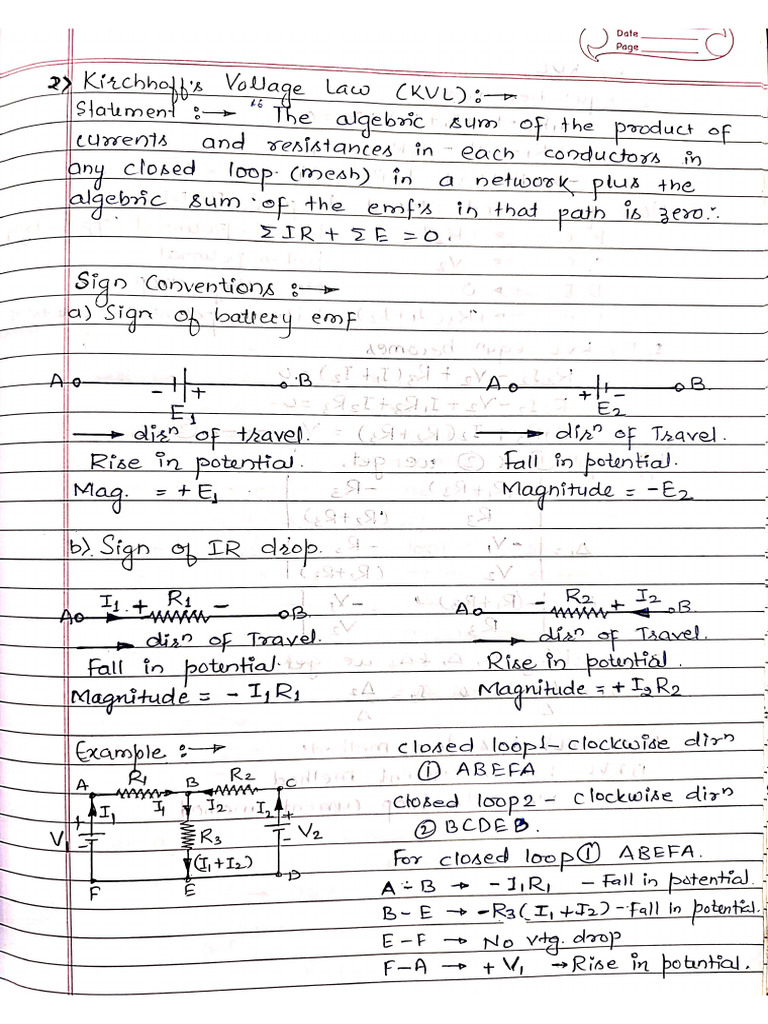 Date
Page
2) Kirchhoff's Voltage Law (KVL) :→
Statement :→ "The algebric sum of the product of
currents and resistances in each conductors in
any closed loop (mesh) in a network plus the
algebric sum of the emf's in that path is zero."
Σ IR + Σ E = 0.
Sign Conventions :→
a) Sign of battery emf
A - + B
E1
A + - B
E2
→ dirn of travel.
→ dirn of Travel.
Rise in potential.
Fall in potential.
Mag. = + E1
Magnitude = - E2
b) Sign of IR drop.
A I1 + R1 - B
A - R2 + I2 B
→ dirn of Travel.
→ dirn of Travel.
Fall in potential.
Rise in potential.
Magnitude = - I1R1
Magnitude = + I2R2
Example :→
A R1 B R2 C
I1 I1 I2 I2
+ +
V1 R3 - V2
(I1+I2)
F E D
closed loop1 - clockwise dirn
① ABEFA
Closed loop2 - clockwise dirn
② BCDEB.
For closed loop① ABEFA.
A - B → - I1R1 - Fall in potential.
B - E → -R3(I1+I2) - Fall in potential.
E - F → No vtg. drop
F - A → + V1 → Rise in potential.